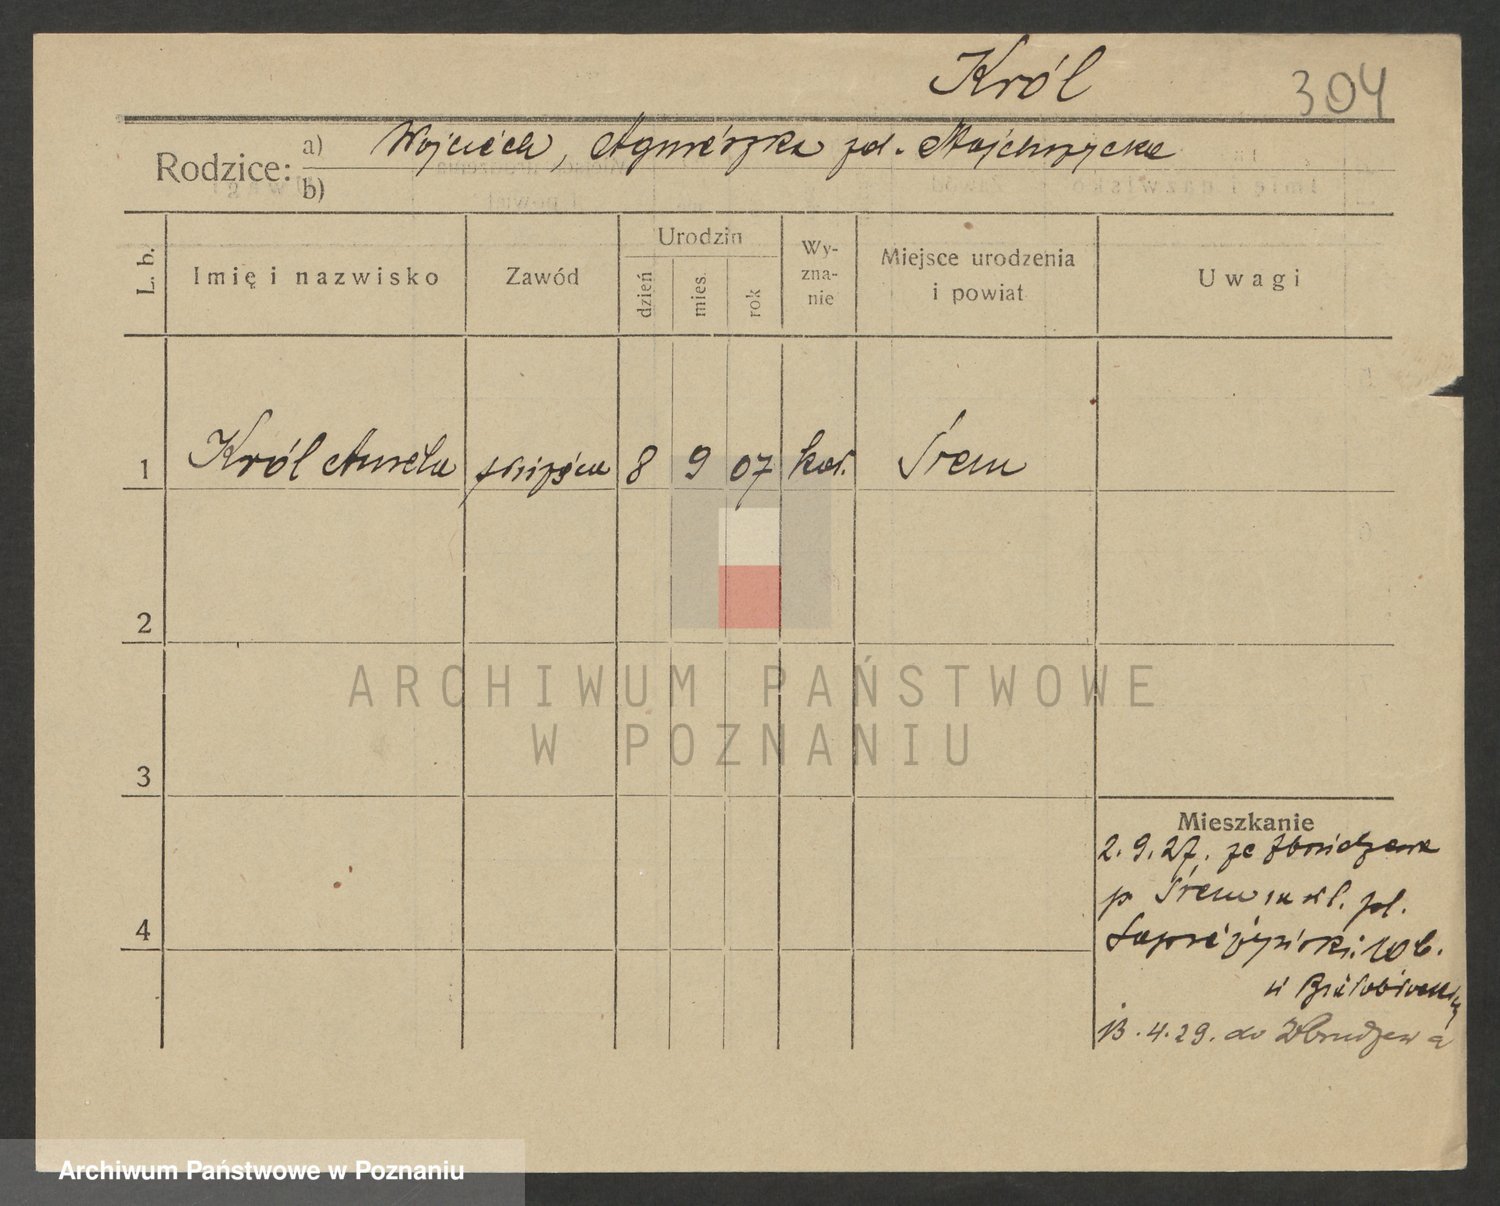 Król 304
Rodzice: a) Wojciech, Agnieszka zd. Majchrzycka
b)
L. b. Imię i nazwisko Zawód Urodzin dzień mies. rok Wyznanie Miejsce urodzenia i powiat Uwagi
1 Król Aniela służąca 8 9 07 kat. Śrem
2
3
Mieszkanie
2.9.27. ze Zbrudzewa
p Śrem
4
13.4.29. do Zbrudzewa
ARCHIWUM PAŃSTWOWE
W POZNANIU
Archiwum Państwowe w Poznaniu